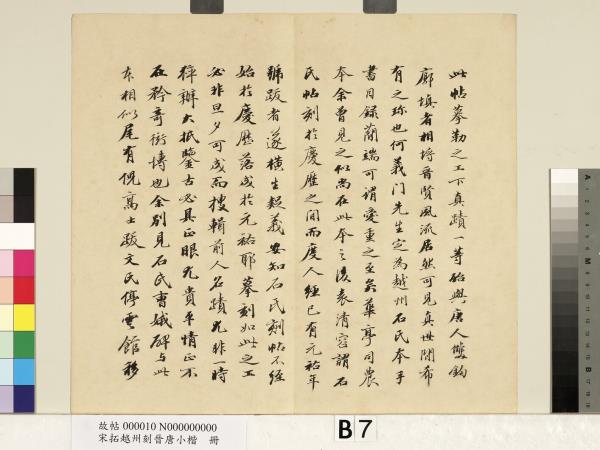 此帖摹勒之工下真蹟一等殆與唐人雙鈎
廓填者相埒晉賢風流居然可見真世間希
有之珍也何義門先生定為越州石氏本手
書目錄蘭端可謂愛重之至矣華亭司農
本余曾見之似尚在此本之後袁清容謂石
氏帖刻於慶曆之間而度人經已有元祐年
號跋者遂橫生疑義安知石氏刻帖不經
始於慶曆落成於元祐耶摹刻如此之工
必非旦夕可成而搜輯前人名蹟尤非一時
猝辦大抵鑒古必具正眼尤貴平情正不
在矜奇衒博也余別見石氏曹娥碑与此
本相似尾有倪高士跋文氏停雲館移
故帖 000010 N000000000
宋拓越州刻晉唐小楷 冊
B7